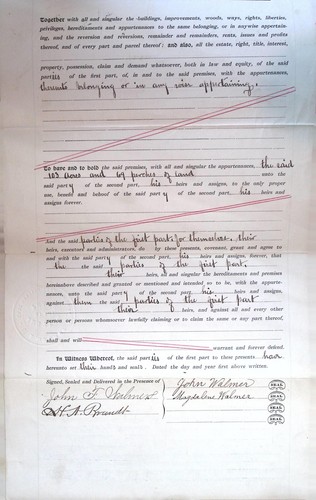 Together with all and singular the buildings, improvements, woods, ways, rights, liberties,
privileges, hereditaments and appurtenances to the same belonging, or in anywise appertain-
ing, and the reversion and reversions, remainder and remainders, rents, issues and profits
thereof, and of every part and parcel thereof: and also, all the estate, right, title, interest,
property, possession, claim and demand whatsoever, both in law and equity, of the said
parties of the first part, of, in and to the said premises, with the appurtenances,
thereunto belonging or in any wise appertaining.
To have and to hold the said premises, with all and singular the appurtenances, the said
103 acres and 64 perches of land unto the
said party of the second part, his heirs and assigns, to the only proper
use, benefit and behoof of the said party of the second part, his heirs and
assigns forever.
And the said parties of the first part, for themselves, their
heirs, executors and administrators, do by these presents, covenant, grant and agree to
and with the said party of the second part, his heirs and assigns, forever, that
the the said parties of the first part,
their heirs, all and singular the hereditaments and premises
hereinabove described and granted or mentioned and intended so to be, with the appurte-
nances, unto the said party of the second part, his heirs and assigns,
against them the said parties of the first part
their heirs, and against all and every other
person or persons whomsoever lawfully claiming or to claim the same or any part thereof,
shall and will warrant and forever defend.
In Witness Whereof, the said parties of the first part to these presents have
hereunto set their hands and seals. Dated the day and year first above written.
Signed, Sealed and Delivered in the Presence of
John Walmer SEAL
John F. Walmer Magdalene Walmer SEAL
H. A. Brandt SEAL
SEAL